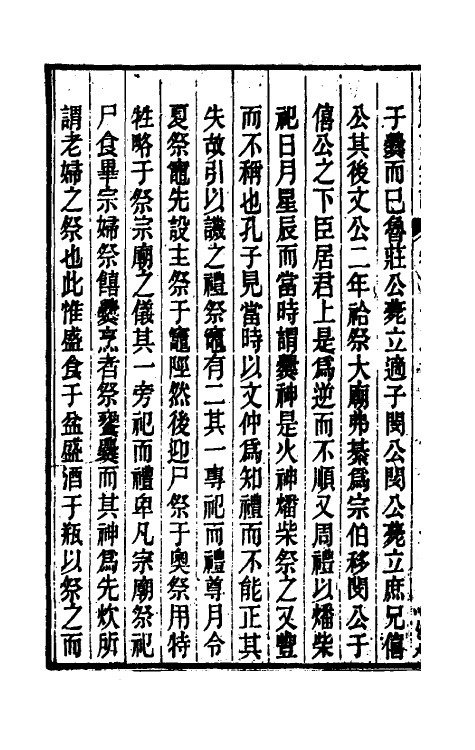 于爨而已魯莊公薨立適子閔公閔公薨立庶兄僖
公其後文公二年祫祭大廟弗綦爲宗伯移閔公于
僖公之下臣居君上是爲逆而不順又周禮以燔柴
祀日月星辰而當時謂爨神是火神燔柴祭之又豐
而不稱也孔子見當時以文仲爲知禮而不能正其
失故引以譏之禮祭竈有二其一專祀而禮尊月令
夏祭竈先設主祭于竈陘然後迎尸祭于奧祭用特
牲略于祭宗廟之儀其一旁祀而禮卑凡宗廟祭祀
尸食畢宗婦祭饎爨烹者祭饔爨而其神爲先炊所
謂老婦之祭也此惟盛食于盆盛酒于瓶以祭之而